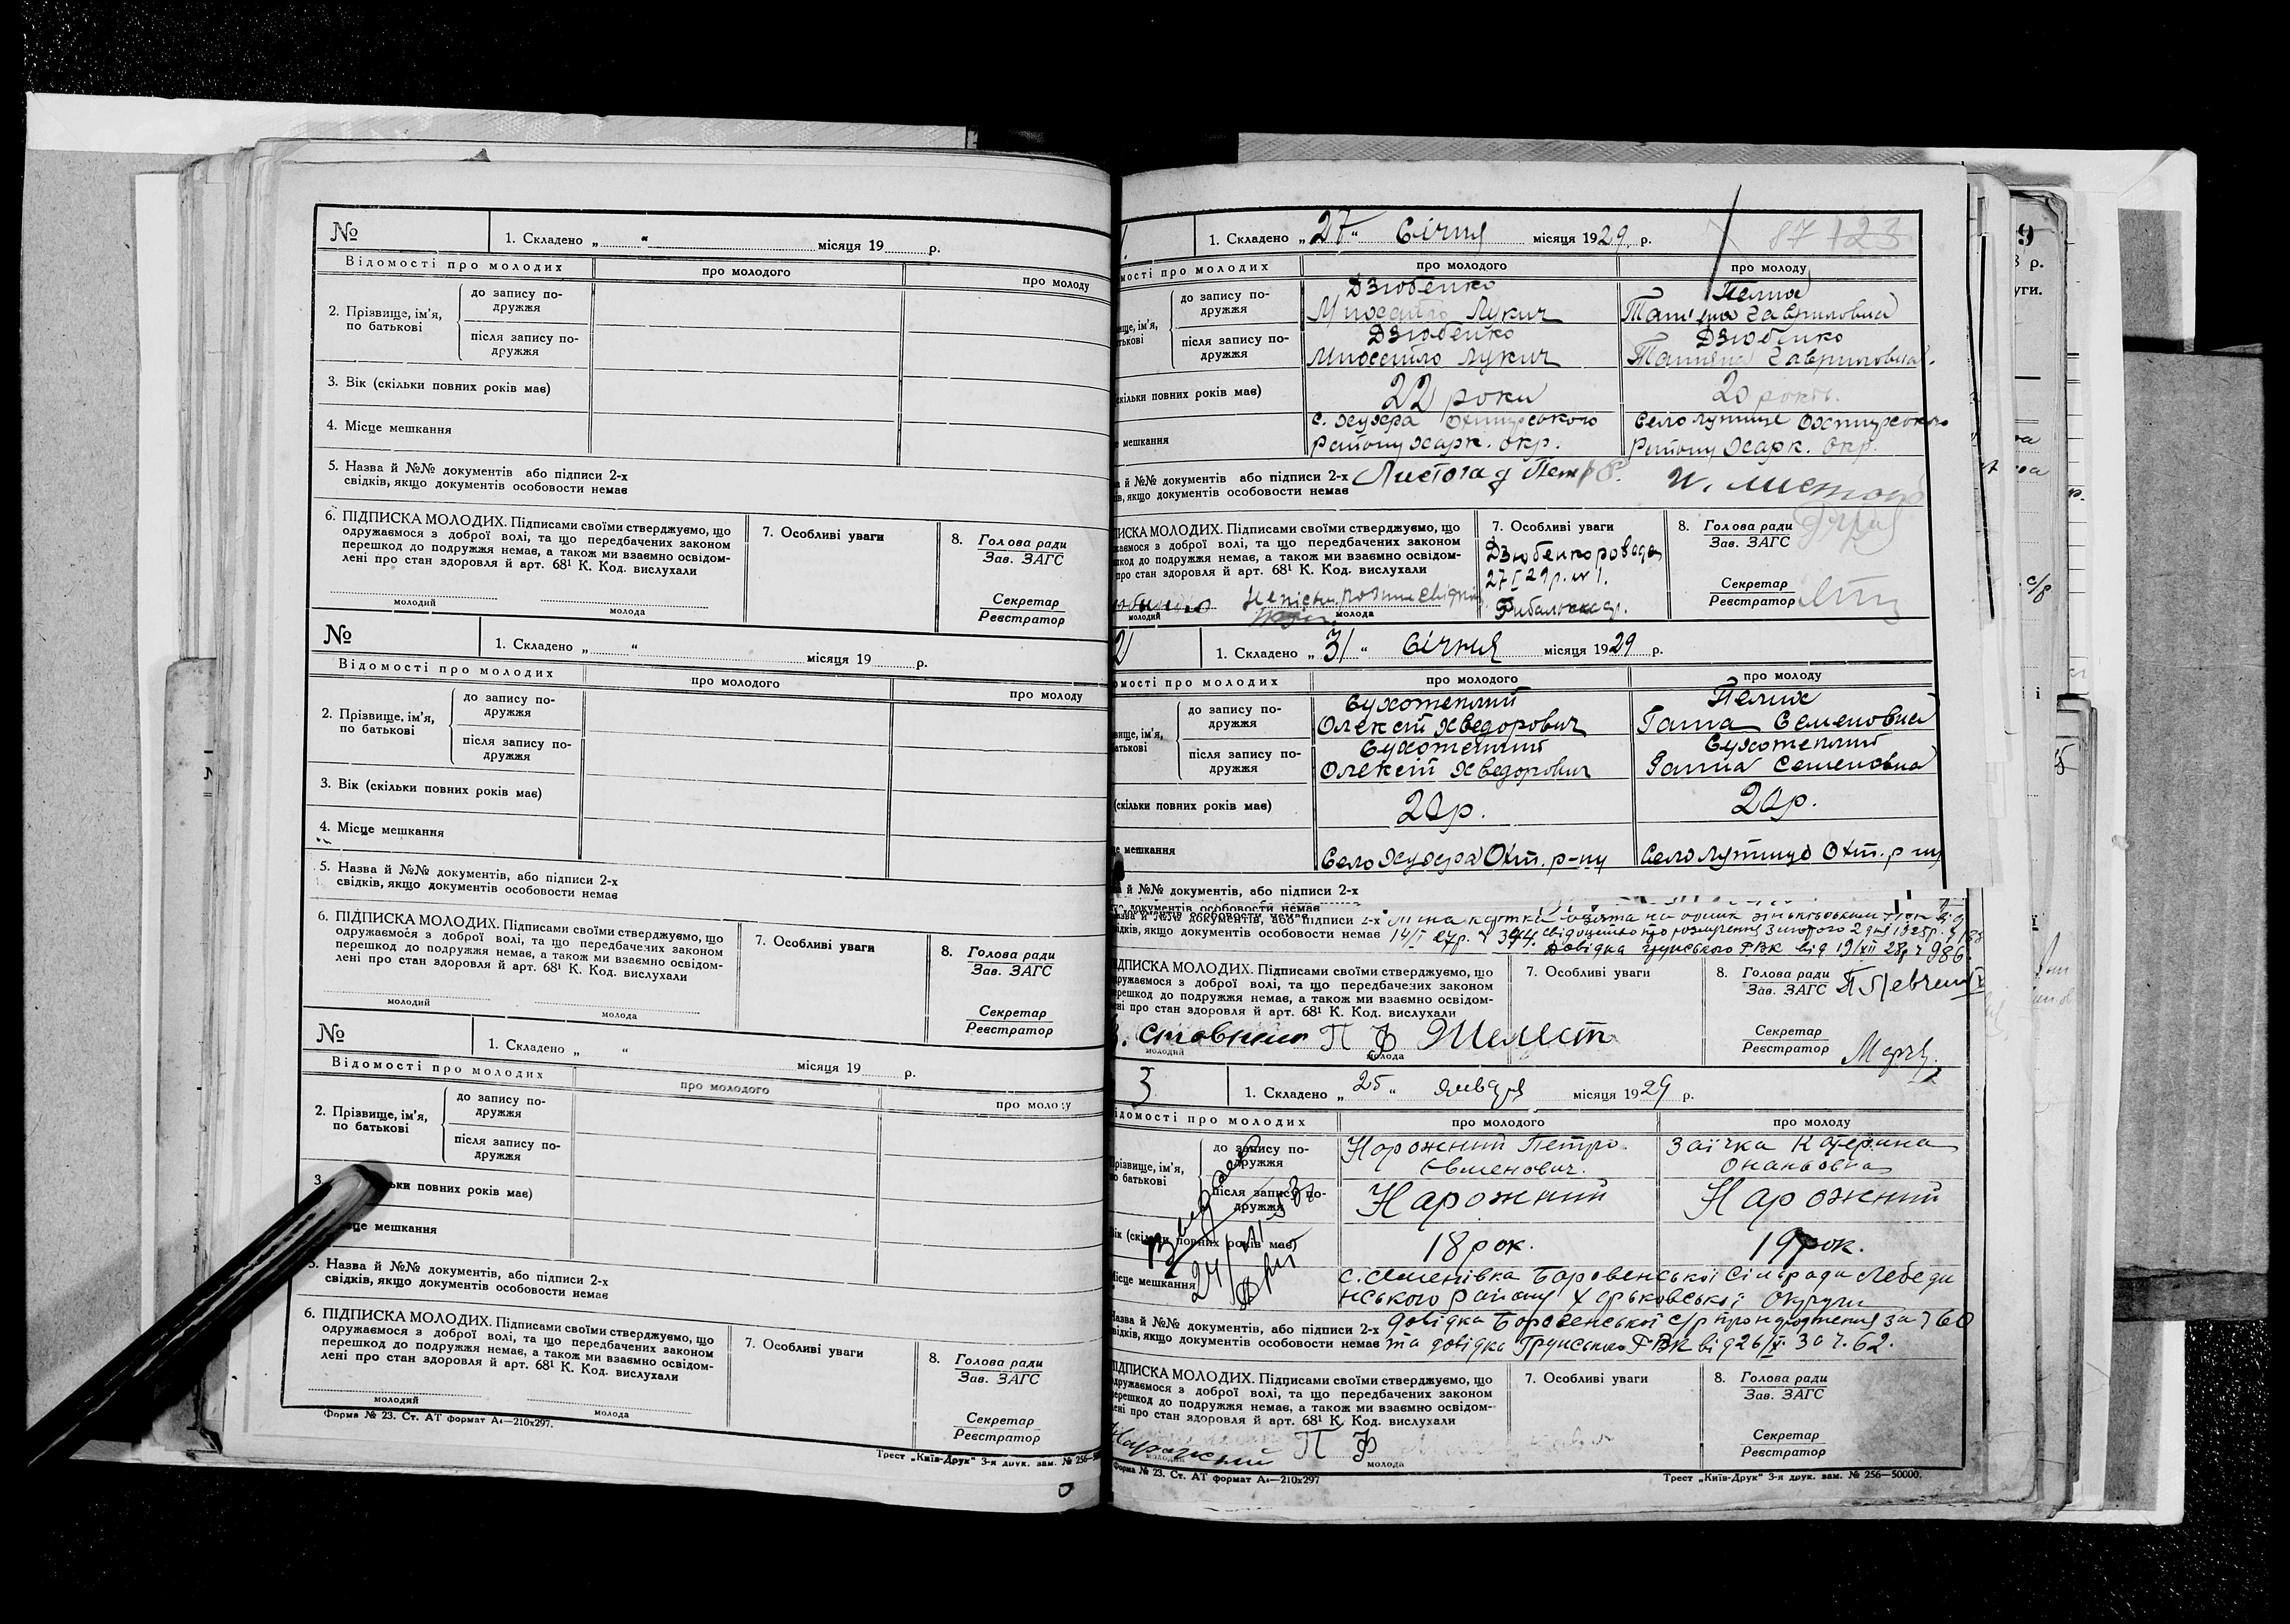 №
1. Складено „ “ місяця 19 р.
Відомості про молодих
про молодого
про молоду
2. Прізвище, ім’я, по батькові
до запису подружжя
після запису подружжя
3. Вік (скільки повних років має)
4. Місце мешкання
5. Назва й №№ документів або підписи 2-х
свідків, якщо документів особовости немає
6. ПІДПИСКА МОЛОДИХ. Підписами своїми стверджуємо, що
одружаємося з доброї волі, та що передбачених законом
перешкод до подружжя немає, а також ми взаємно освідом-
лені про стан здоровля й арт. 68¹ К. Код. вислухали
молодий
молода
7. Особливі уваги
8. Голова ради
Зав. ЗАГС
Секретар
Реєстратор
№
1. Складено „ “ місяця 19 р.
Відомості про молодих
про молодого
про молоду
2. Прізвище, ім’я,
по батькові
до запису по-
дружжя
після запису по-
дружжя
3. Вік (скільки повних років має)
4. Місце мешкання
5. Назва й №№ документів, або підписи 2-х
свідків, якщо документів особовости немає
6. ПІДПИСКА МОЛОДИХ. Підписами своїми стверджуємо, що
одружаємося з доброї волі, та що передбачених законом
перешкод до подружжя немає, а також ми взаємно освідом-
лені про стан здоровля й арт. 68¹ К. Код. вислухали
молодий
молода
7. Особливі уваги
8. Голова ради
Зав. ЗАГС
Секретар
Реєстратор
№
1. Складено „ “ місяця 19 р.
Відомості про молодих
про молодого
про молоду
2. Прізвище, ім’я,
по батькові
до запису по-
дружжя
після запису по-
дружжя
3. ьки повних років має)
це мешкання
5. Назва й №№ документів, або підписи 2-х
свідків, якщо документів особовости немає
6. ПІДПИСКА МОЛОДИХ. Підписами своїми стверджуємо, що
одружаємося з доброї волі, та що передбачених законом
перешкод до подружжя немає, а також ми взаємно освідом-
лені про стан здоровля й арт. 68¹ К. Код. вислухали
молодий
молода
7. Особливі уваги
8. Голова ради
Зав. ЗАГС
Секретар
Реєстратор
Форма № 23. Ст. АТ формат А₄—210х297.
Трест „Київ-Друк“ 3-я друк. зам. № 256—
1. Складено „27“ Січня місяця 1929 р.
87 123
мості про молодих
про молодого
про молоду
до запису по-
дружжя
Дзюбенко
Лукич
Пелих
Гавриловна
після запису по-
дружжя
Дзюбенко
Лукич
Дзюбенко
Тетяна Гавриловна
скільки повних років має)
22 роки
20 років.
мешкання
с. Хухра Охтирського
Району Харк. окр.
Село Лутище Охтирского
Району Харк. окр.
а й №№ документів або підписи 2-х
ів, якщо документів особовости немає
Листопад
ПИСКА МОЛОДИХ. Підписами своїми стверджуємо, що
жаємося з доброї волі, та що передбачених законом
шкод до подружжя немає, а також ми взаємно освідом-
про стан здоровля й арт. 68¹ К. Код. вислухали
молодий
молода
7. Особливі уваги
Дзюбенко
27 I 29 р. № 1.
8. Голова ради
Зав. ЗАГС
Секретар
Реєстратор
2
1. Складено „31“ Січня місяця 1929 р.
омості про молодих
про молодого
про молоду
до запису по-
дружжя
Сухотеплий
Олексій Хведорович
Пелих
Ганна Семеновна
після запису по-
дружжя
Сухотеплий
Олексій Хведорович
Сухотеплий
Ганна Семеновна
(скільки повних років має)
20 р.
20 р.
мешкання
Село Хухра Охт. р-ну
Село Лутище Охт. р-ну
а й №№ документів, або підписи 2-х
документів особовости немає
Назва й №№ документів, або підписи 2-х
відків, якщо документів особовости немає
14/I 27р. № 394.
Довідка Грунського РВК від 19/XII 28р № 986.
ІДПИСКА МОЛОДИХ. Підписами своїми стверджуємо, що
дружаємося з доброї волі, та що передбачених законом
ерешкод до подружжя немає, а також ми взаємно освідом-
ені про стан здоровля й арт. 68¹ К. Код. вислухали
П Ф Шелест
молодий
молода
7. Особливі уваги
8. Голова ради
Зав. ЗАГС
Секретар
Реєстратор
3
1. Складено „25“ Января місяця 1929 р.
ідомості про молодих
про молодого
про молоду
різвище, ім’я,
о батькові
до запису по-
дружжя
Нарожний Петро
Євменович.
Заїчка Катерина
Онаньовна
після запису по-
дружжя
Нарожний
Нарожний
ік (скільки повних років має)
18 рок.
19 рок.
ісце мешкання
с. Семенівка Боровенської Сільради Лебеди
нського району Харьковської Округи
азва й №№ документів, або підписи 2-х
відків, якщо документів особовости немає
довідка Боровенської с/р про народження за № 60
та довідка Грунського РВК від 26/ за №. 62.
ІДПИСКА МОЛОДИХ. Підписами своїми стверджуємо, що
дружаємося з доброї волі, та що передбачених законом
ерешкод до подружжя немає, а також ми взаємно освідом-
ені про стан здоровля й арт. 68¹ К. Код. вислухали
Нарожний П Ф
молодий
молода
7. Особливі уваги
8. Голова ради
Зав. ЗАГС
Секретар
Реєстратор
Форма № 23. Ст. АТ формат А₄—210х297
Трест „Київ-Друк“ 3-я друк. зам. № 256—50000.